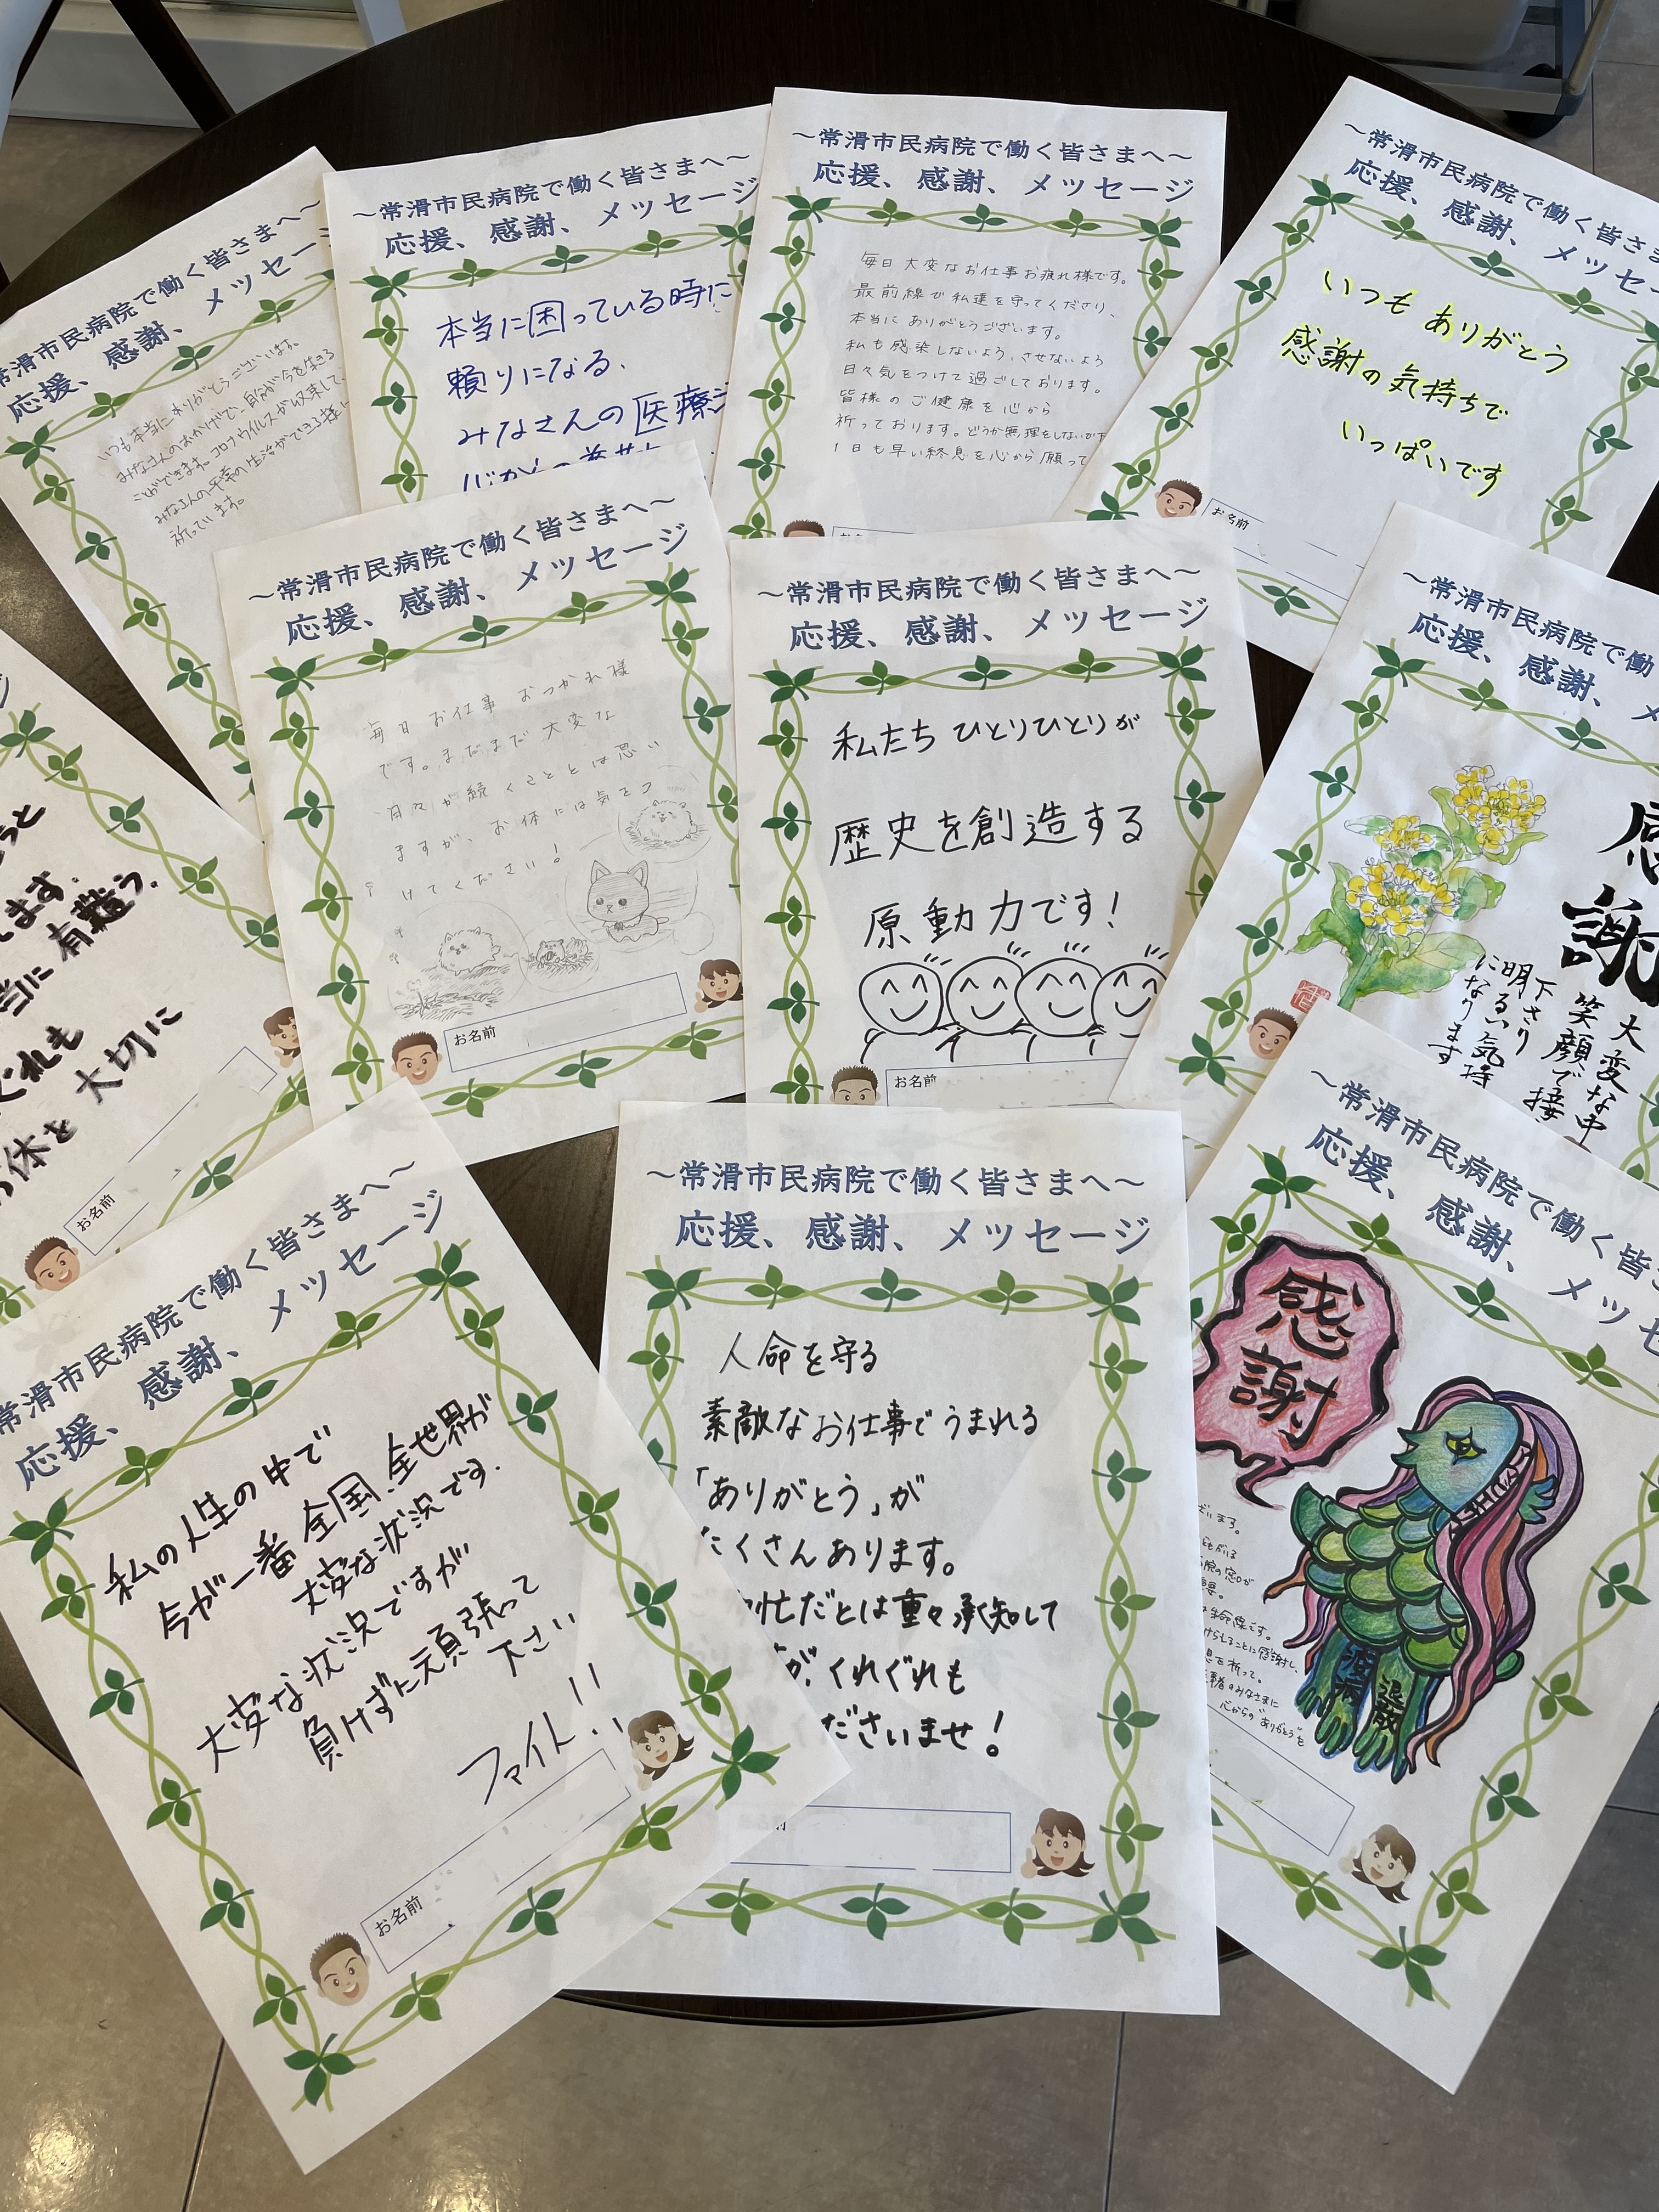 常滑市民病院で働く皆さまへ～
応援、感謝、メッセー
いつも本当にありがとうございます。
みなさんのおかげで、自分が今を生きる
ことができます。コロナウイルスが収束して、
みなさんの平常の生活ができる様に
祈っています。
～常滑市民病院で働く皆さまへ～
応援、感謝、メッセージ
本当に困っている時に
頼りになる、
みなさんの医療
～常滑市民病院で働く皆さまへ～
応援、感謝、メッセージ
毎日大変なお仕事お疲れ様です。
最前線で私達を守ってくださり、
本当にありがとうございます。
私も感染しないよう、させないよう
日々気をつけて過ごしております。
皆様のご健康を心から
祈っております。どうか無理をしないか
1日も早い終息を心から願って
～常滑市民病院で働く皆さま
応援、感謝、メッセー
いつも ありがとう
感謝の気持ちで
いっぱいです
お名前
うと
ます.
に有難う.
ぐれも
お体を大切に
お名前
～常滑市民病院で働く皆さまへ～
応援、感謝、メッセージ
毎日お仕事おつかれ様
です。まだまだ大変な
日々が続くことと思い
ますが、お体には気をつ
けてください！
お名前
～常滑市民病院で働く皆さまへ～
応援、感謝、メッセージ
私たち ひとりひとりが
歴史を創造する
原動力です！
お名前
～常滑市民病院で働
応援、感謝、メ
感謝
大変な中
笑顔で接
下さり
明るい気持
になります
常滑市民病院で働く皆さまへ～
応援、感謝、メッセージ
私の人生の中で
今が一番 全国、全世界が
大変な状況です.
大変な状況ですが
負けずに頑張って
下さい
ファイト!!
お名前
～常滑市民病院で働く皆さまへ～
応援、感謝、メッセージ
人命を守る
素敵なお仕事でうまれる
「ありがとう」が
たくさんあります。
忙だとは重々承知して
が、くれぐれも
ださいませ！
～常滑市民病院で働く皆さ
応援、感謝、メッセ
感謝
疫病
退散
ざいます。
命線です。
ことに感謝し、
を祈って。
のみなさまに
心からの"ありがとう"を